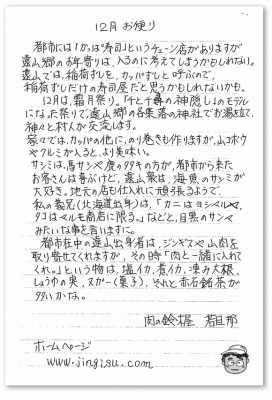 12月 お便り
都市には「かっぱ寿司」というチェーン店がありますが
遠山郷のお年寄りは、入るのに考えてしまうかもしれない。
遠山では、稲荷ずしを、カッパずしと呼ぶので、
稲荷ずしだけの寿司屋だと思うかもしれないかも。
12月は、霜月祭り。「千と千尋の神隠し」のモデル
になった祭りで、遠山郷の各集落の神社でお湯を立て、
神々と村人が交流します。
家々では、カッパの他に、のり巻きも作りますが、山ゴボウ
やクルミが入ると、より美味い。
サンミは、馬サシや鹿のタタキの方が、都市から来た
お客さんは喜ぶけど、遠山衆は、海魚のサシミが
大好き。地元の店も仕入れに頑張るようで、
私の義兄(北海道出身)は、「カニはヨシベルヤ、
タコはマルモ商店に限る。」などと、目黒のサンマ
みたいな事を言いますに。
都市在中の遠山出身者は、ジンギスや山肉を
取り寄せてくれますが、その時「肉と一緒に入れて
くれ。」という物は、塩イカ、煮イカ、凍み大根、
しょうゆの実、スガー(菓子)、それと赤石銘茶が
多いかな。
肉の鈴木屋 若旦那
ホームページ
www.jingisu.com